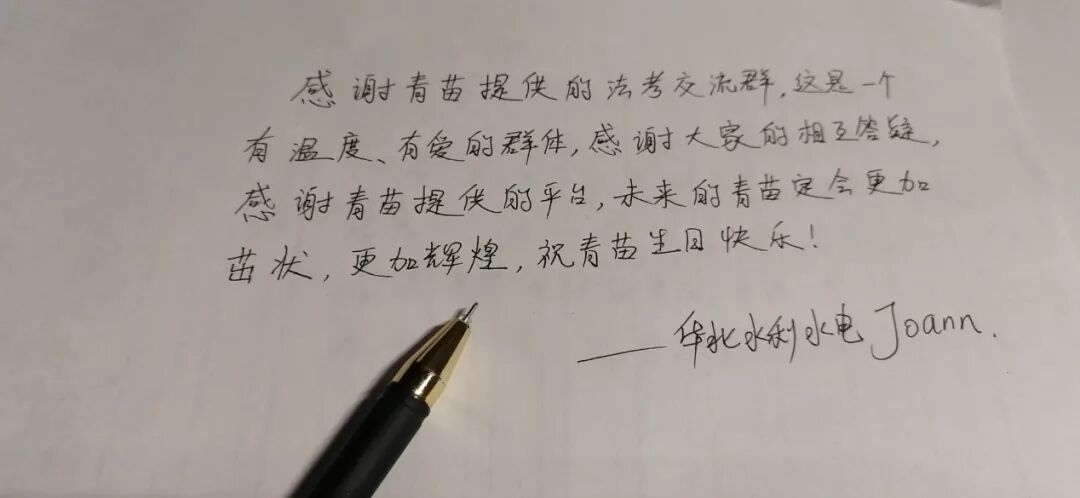 感谢青苗提供的法考交流群,这是一个
有温度、有爱的群体,感谢大家的相互答疑,
感谢青苗提供的平台,未来的青苗定会更加
茁状,更加辉煌,祝青苗生日快乐!
——华北水利水电Joann.